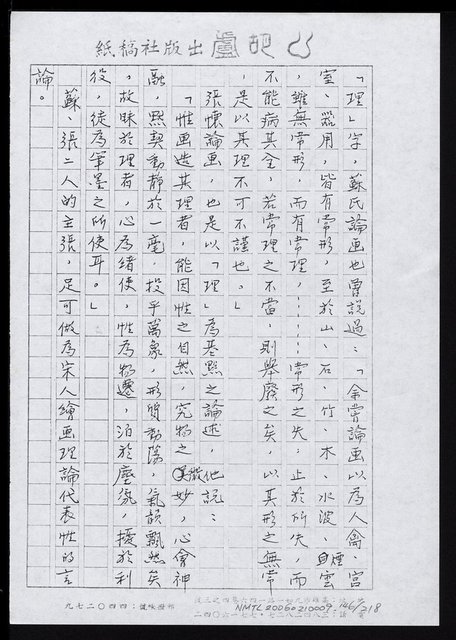 紙稿社版出蘆葫
「理」字,蘇氏論画也曾說過:「余嘗論画以為人禽、宮
室、器用,皆有常形,至於山、石、竹、木、水波、煙雲
,雖無常形,而有常理,……常形之失,止於所失,而
不能病其全,若常理之不當,則舉廢之矣,以其形之無常
,是以其理不可不謹也。」
張懷論画,也是以「理」為基點之論述,他說:
「惟画造其理者,能因性之自然,究物之微妙,心會神
融,默契動靜於一塵,投乎萬象,形質動蕩,氣韻飄然矣
。故昧於理者,心為緒使,性為物遷,汨於塵坌,擾於利
役,徒為筆墨之所使耳。」
蘇、張二人的主張,足可做為宋人繪画理論代表性的言
論。
NMTL20060210009-146/218
九七〇二四〇四